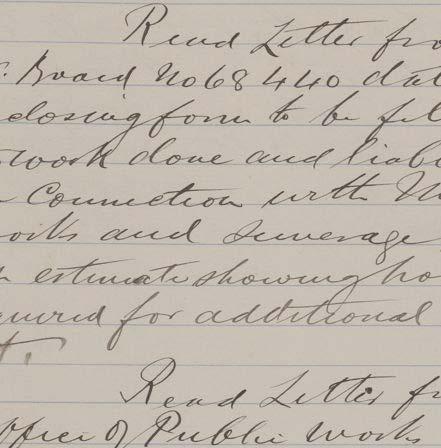 Read Letter fro
Board No 68440 dat
closing form to be fil
work done and liab
Connection with
orks and Sewerage
estimate showing ho
quired for additional
t.
Read Letter fr
Office of Public Works